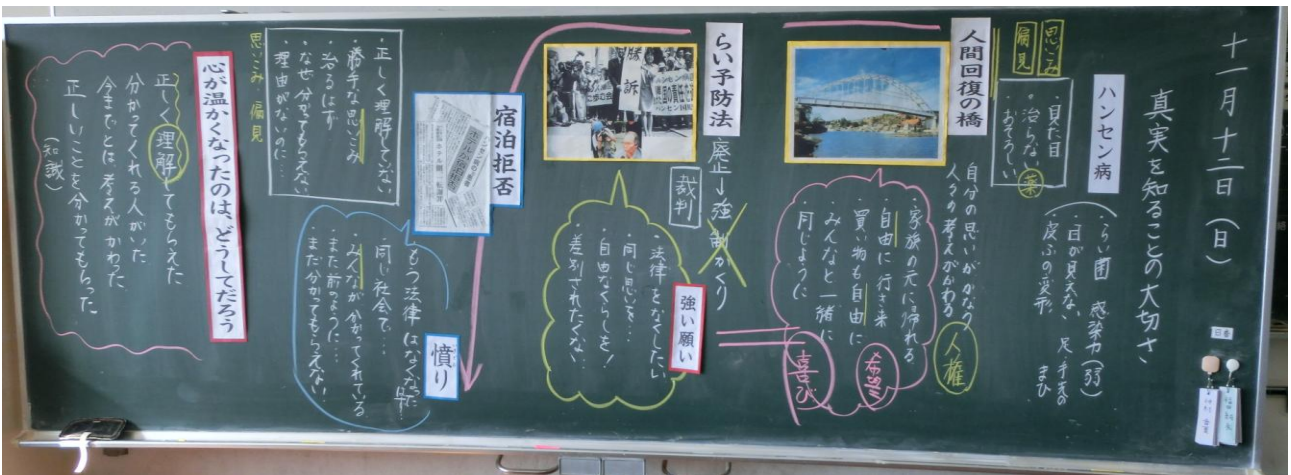 十一月十二日(日)
真実を知ることの大切さ
ハンセン病
・らい菌 感染力(弱)
・目が見えない、足・手先のまひ
・皮ふの変形
思いこみ
偏見
・見た目
・治らない 薬
・おそろしい
人間回復の橋
自分の思いがかなう
人々の考えがかわる
人権
・家族の元に帰れる
自由に行き来
買い物も自由に
・みんなと一緒に
・同じように
希望
喜び
らい予防法
廃止→強制かくり
裁判
勝訴
強い願い
・法律をなくしたい
・同じ思いを…
・自由なくらしを!
・差別されたくない
宿泊拒否
憤り
・もう法律はなくなった
同じ社会で…
・みんなが分かってくれている
・また前のように…
まだ分かってもらえない!
・正しく理解してない
・勝手な思いこみ
・治るはず
・なぜ分かってもらえない
・理由がないのに…
思いこみ・偏見
心が温かくなったのは、どうしてだろう
正しく理解してもらえた
分かってくれる人がいた
今までとは考えがかわった
正しいことを分かってもらった
(知識)
日番